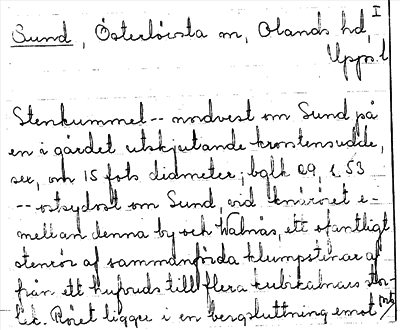 I
Sund, Österlövsta sn, Olands hd,
Upps.l
Stenkummel -- nordvest om Sund på
en i gärdet utskjutande krosstensudde,
sex, om 15 fots diameter; bglk 09, s. 53
-- ostsydost om Sund, vid
mellan denna by och Walnäs, ett ofantligt
stenrör af sammanförda klumpstenar af
från ett hufvuds till flera kubikalnars stor-
lek. Röset ligger i en bergsluttning emot